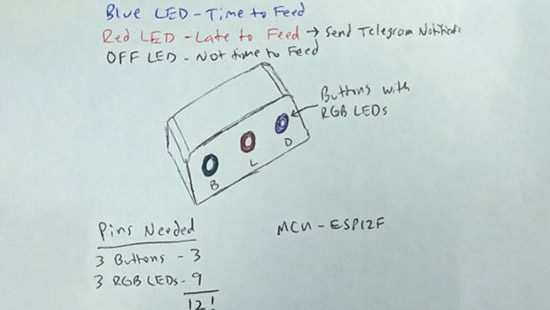 Blue LED - Time to Feed
Red LED - Late to Feed → Send Telegram
OFF LED - Not time to Feed
Buttons with
RGB LEDs
B L D
Pins Needed
3 Buttons - 3
3 RGB LEDs - 9
12!
MCU - ESP12F